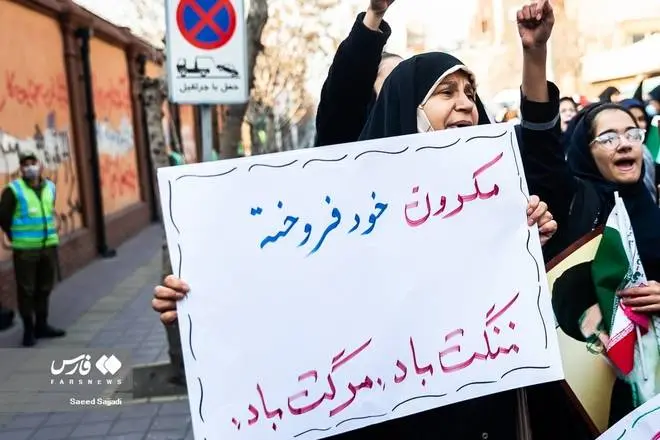 حمل با جرثقیل
مکرون خودفروخته
ننگت باد، مرگت باد،
فارس
FARSNEWS
Saeed Sajjadi